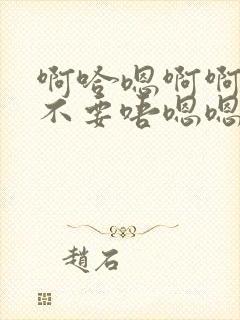 啊哈嗯啊啊
不要唔嗯嗯
趙石